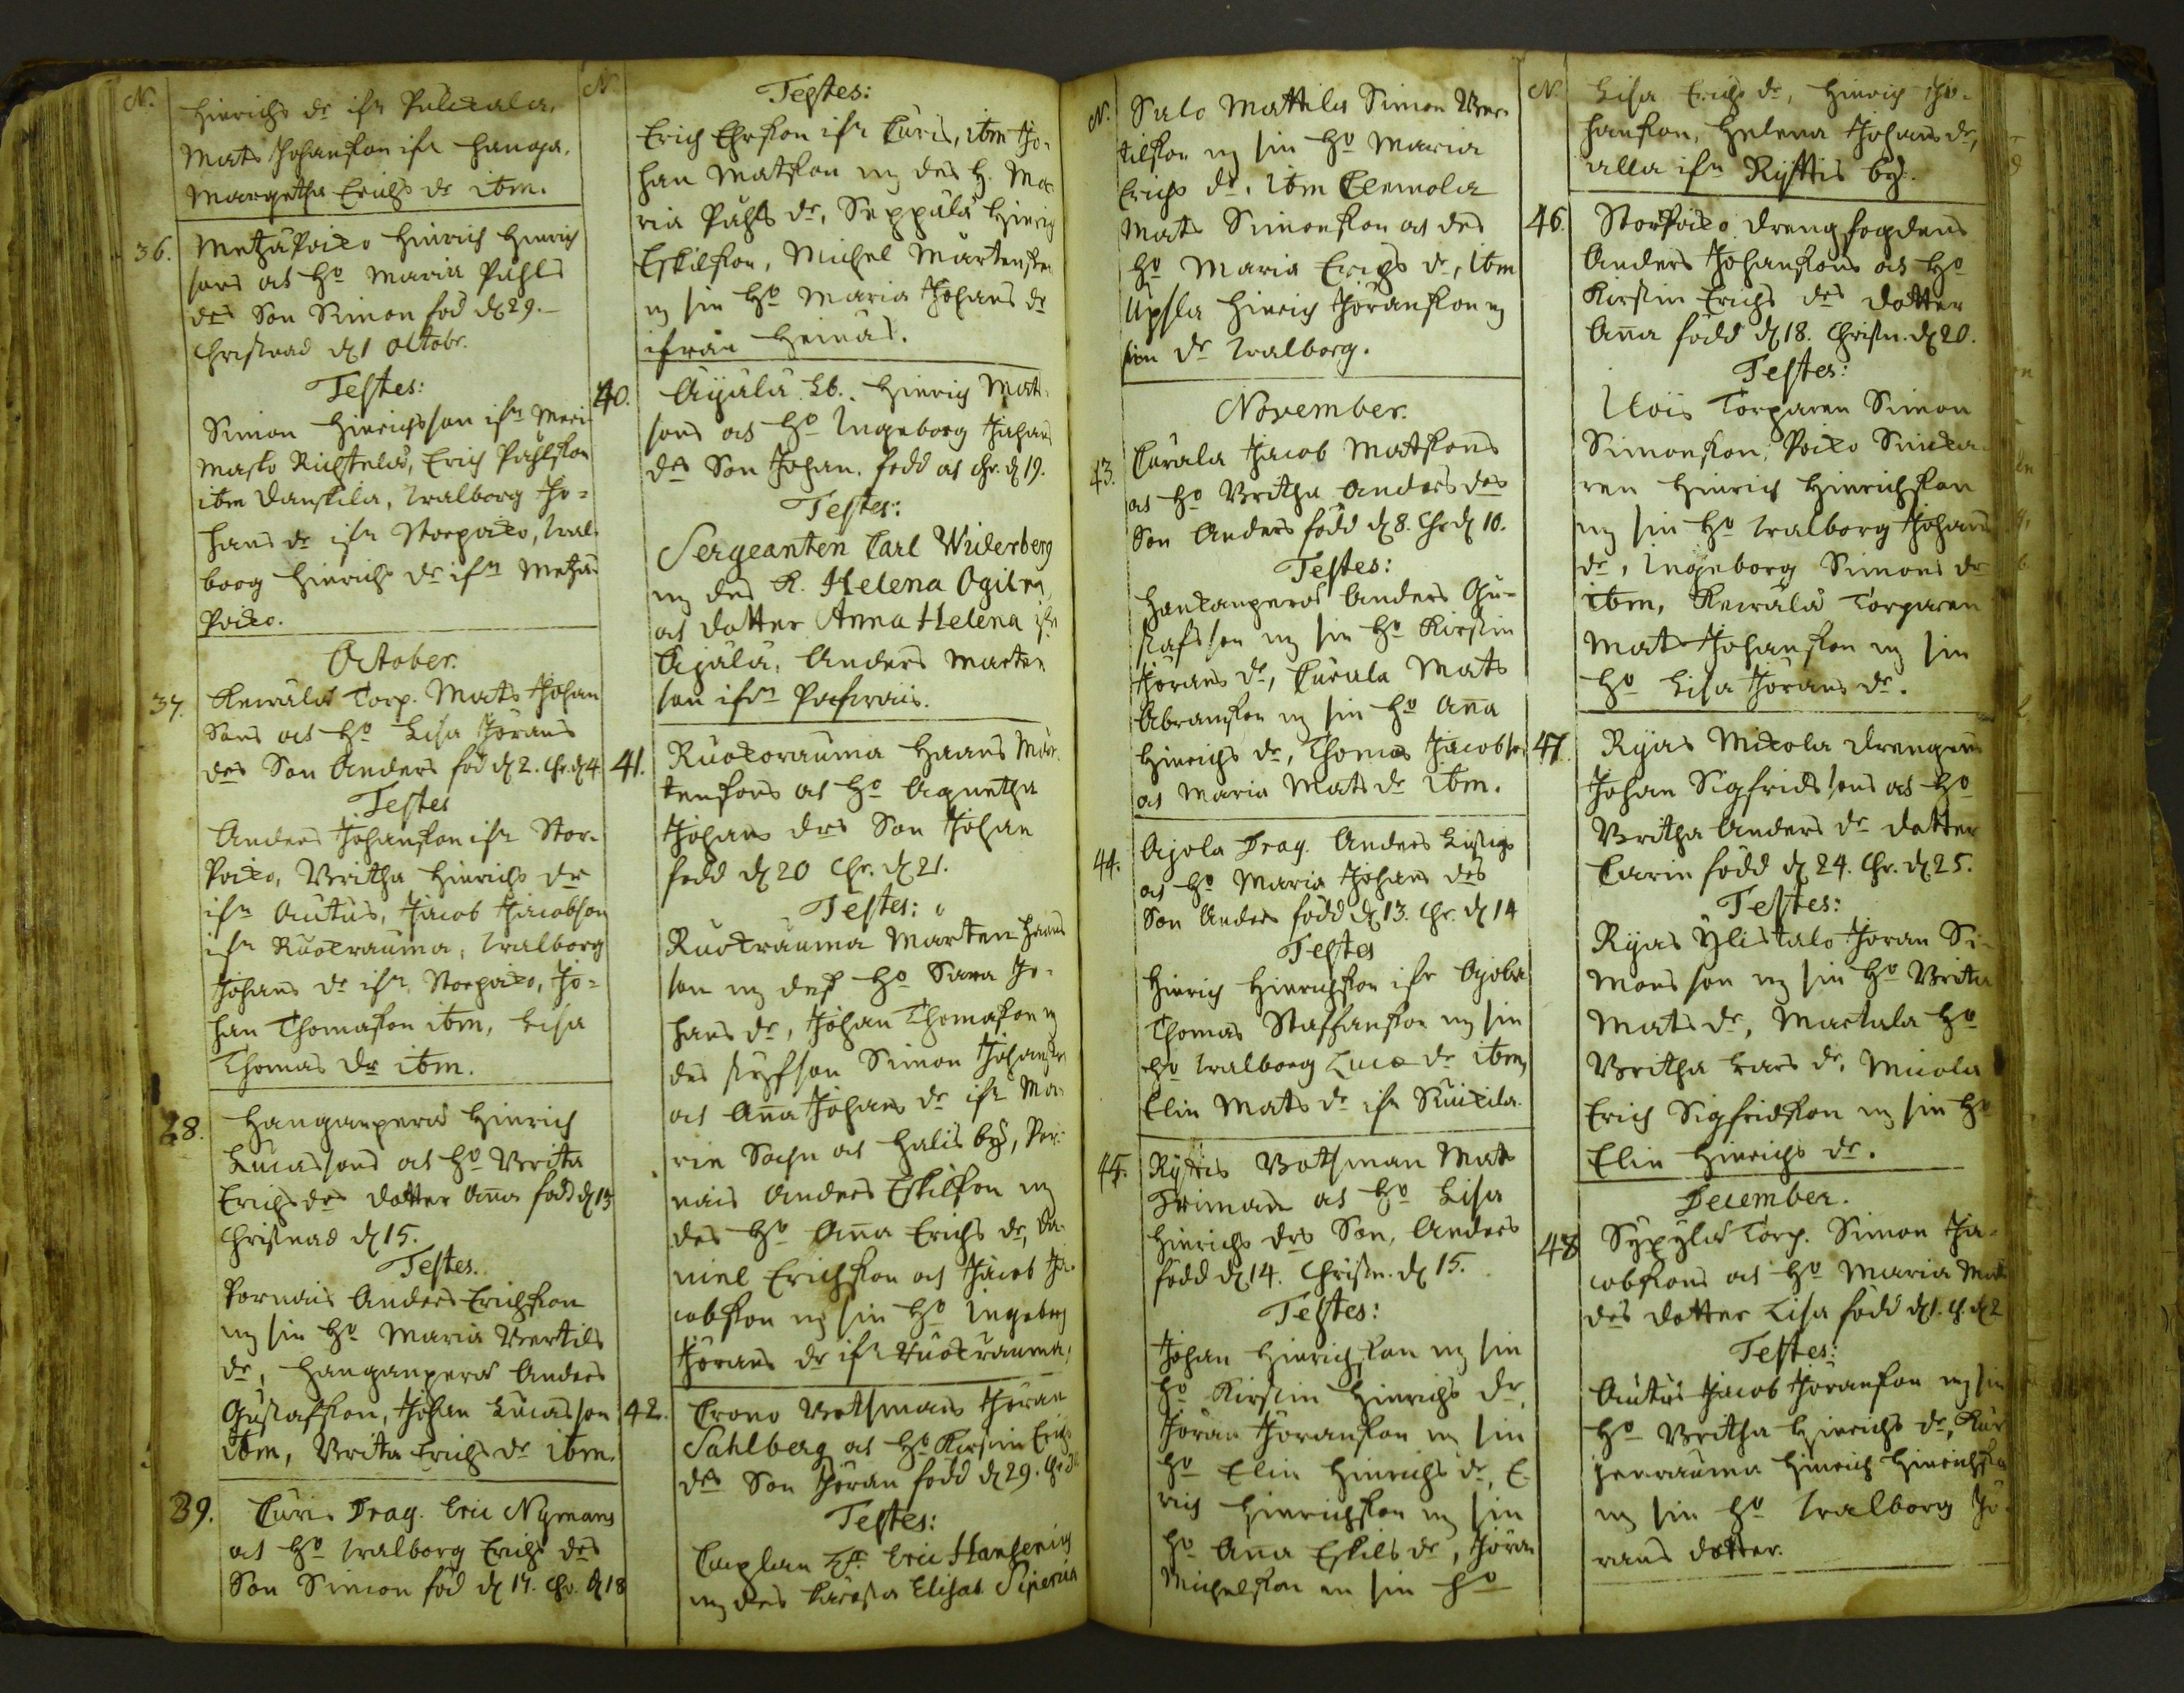 N.
Hinrichs dr ifr Pulckala,
Mats Johansson ifr Hanga,
Margetha Erichs dr itm.
36. Metzäpoiko Hinrich Hinrich
sons at Ho Maria Påhls
drs Son Simon föd d 29.
Christnad d 1 Octobr.
Testes:
Simon Hinrichsson ifr Meri
masko Richtelä, Erich Påhlsson
itm Danskila, Walborg Jo=
hans dr ifr Storpoiko, Wal-
borg Hinrichs dr ifrn Metzä
Poiko.
October.
37. Keiwälä Torp. Mats Johan
Sons at Ho Lisa Jörans
drs Son Anders föd d 2. Chr. d 4
Testes
Anders Johansson ifr Stor-
Poiko, Britha Hinrichs dr
ifrn Autus, Jacob Jacobson
ifr Ruokrauma, Walborg
Johans dr ifr, Storpoiko, Jo=
han Thomasson itm, Lisa
Thomas dr itm.
38. Hanganperä Hinrich
Lucassons at Ho Brita
Erichs drs dotter Ana född d 13
Christnad d 15.
Testes.
Pornais Anders Erichsson
m sin Ho Maria Bertils
dr, Hanganperä Anders
Gustafsson, Johan Lucasson
itm, Brita Erichs dr itm.
39. Curis Drag. Eric Nymans
at Ho Walborg Erichs drs
Son Simon föd d 17. Chr. d 18
N
Testes:
Erich Ersson ifr Curis, itm Jo-
han Matsson m des H. Ma
ria Påhls dr, Seppälä Hinrich
Eskilsson, Michel Mårtensson
m sin Ho Maria Johans dr
ifrån Heinäs.
40. Äijälä Lb. Hinrich Mat-
sons at Ho Ingeborg Johans
drs Son Johan. född at Chr. d 19.
Testes:
Sergeanten Carl Widerberg
m des K. Helena Ogilvia
at dotter Anna Helena ifr
Äijälä, Anders Marten
son ifrn Pasvais.
41. Ruokorauma Haans Mår-
tensons at Ho Agnetha
Johans drs Son Johan
född d 20 Chr. d 21.
Testes:
Ruokrauma Marten Haans
son m des Ho Sara Jo-
hans dr, Johan Thomasson m
des styfson Simon Johansson
at Ana Johans dr ifr Ma-
rie Sochn at Halis by, Por-
nais Anders Eskilson m
des Ho Ana Erichs dr, Da-
niel Erichsson at Jacob Ja-
cobsson m sin Ho Ingeborg
Jörans dr ifr Ruokrauma,
42. Crono Botsmans Jöran
Sahlberg at Ho Kirstin Erichs
drs Son Jöran född d 29. Chr d
Testes:
Caplan Hr Eric Hansenius
m des Kärasta Elisab. Piperia
N.
Salo Mattila Simon Ber-
tilsson m sin Ho Maria
Erichs dr, itm Clemola
Mats Simonsson at des
Ho Maria Erichs dr, itm
Upsla Hinrich Jöransson m
sin dr Walborg.
November.
43. Curala Jacob Matssons
at Ho Britha Anders drs
Son Anders född d 8. Chr d 10.
Testes:
Hankanperä Anders Gu-
stafsson m sin Ho Kirstin
Jörans dr, Curala Mats
Abramsson m sin Ho Ana
Hinrichs dr, Thomas Jacobson
at Maria Mats dr itm.
44. Ajola Drag. Anders Listigs
at Ho Maria Johans drs
Son Anders född d 13. Chr. d 14
Testes
Hinrich Hinrichsson ifr Ajola
Thomas Staffansson m sin
Ho Walborg Luca dr itm,
Elin Mats dr ifr Suikila.
45. Ryttis Botsman Mats
Triman at Ho Lisa
Hinrichs drs Son, Anders
född d 14. Christn. d 15.
Testes:
Johan Hinrichsson m sin
Ho Kirstin Hinrichs dr,
Jöran Jöransson m sin
Ho Elin Hinrichs dr, E-
rich Hinrichsson m sin
Ho Ana Eskils dr, Jöran
Michelsson m sin Ho
N
Lisa Erichs dr, Hinrich Jo-
hansson, Helena Johans dr,
alla ifrn Ryttis by.
46. Storpoiko drengfogdens
Anders Johanssons at Ho
Kirstin Erichs drs dotter
Ana född d 18. Christn. d 20.
Testes:
Uois Torparen Simon
Simonsson, Poiko Sincka-
ren Hinrich Hinrichsson
m sin Ho Walborg Johans
dr, Ingeborg Simons dr
itm, Keiwälä Torparen
Mats Johansson m sin
Ho Lisa Jörans dr.
47. Rjas Mickola drengens
Johan Sigfridssons at Ho
Britha Anders dr dotter
Carin född d 24. Chr. d 25.
Testes:
Rjas Ylistalo Jöran Si-
monsson m sin Ho Brita
Mats dr, Martala Ho
Britha Lars dr, Micola
Erich Sigfridsson m sin Ho
Elin Hinrichs dr.
December.
48 Syxylä Torp. Simon Ja-
cobssons at Ho Maria Mats
drs dotter Lisa född d 1. Ch. d 2
Testes:
Autus Jacob Jöransson m sin
Ho Britha Hinrichs dr, Kar
jenrauma Hinrich Hinrichsson
m sin Ho Walborg Jö-
rans dotter.